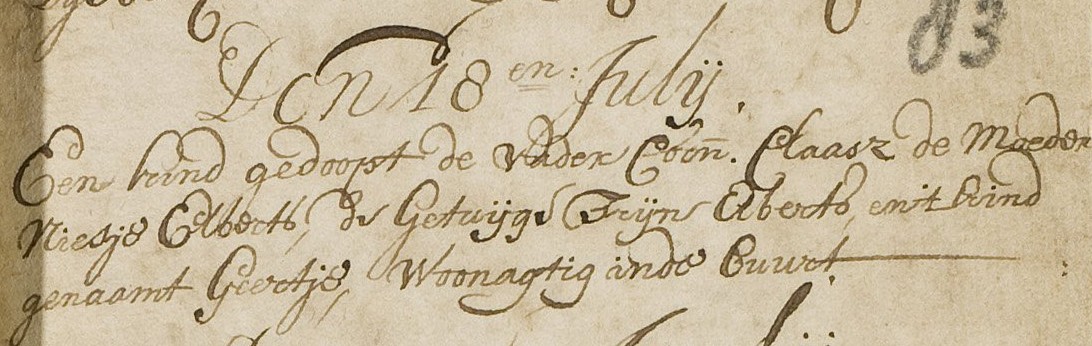 83
Den 18 en: Julij.
Een kind gedoopt de Vader Coõn. Claasz de Moeder
Niesje Elberts, de Getuijge Trijn Elberts, en't kind
genaamt Geertje, Woonagtig inde Buurt.